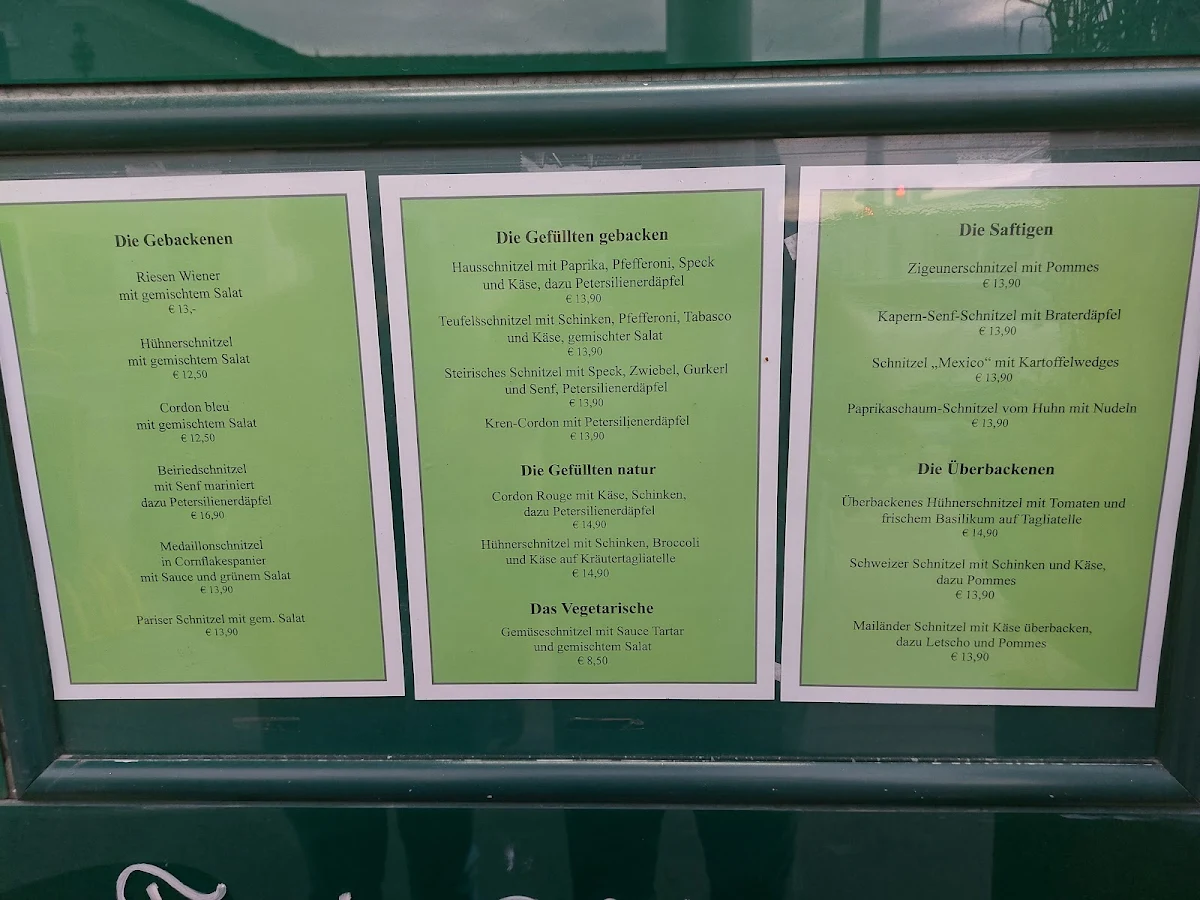 Die Gebackenen
Riesen Wiener
mit gemischtem Salat
€ 13,-
Hühnerschnitzel
mit gemischtem Salat
€ 12,50
Cordon bleu
mit gemischtem Salat
€ 12,50
Beiriedschnitzel
mit Senf mariniert
dazu Petersilienerdäpfel
€ 16,90
Medaillonschnitzel
in Cornflakespanier
mit Sauce und grünem Salat
€ 13,90
Pariser Schnitzel mit gem. Salat
€ 13,90
Die Gefüllten gebacken
Hausschnitzel mit Paprika, Pfefferoni, Speck
und Käse, dazu Petersilienerdäpfel
€ 13,90
Teufelsschnitzel mit Schinken, Pfefferoni, Tabasco
und Käse, gemischter Salat
€ 13,90
Steirisches Schnitzel mit Speck, Zwiebel, Gurkerl
und Senf, Petersilienerdäpfel
€ 13,90
Kren-Cordon mit Petersilienerdäpfel
€ 13,90
Die Gefüllten natur
Cordon Rouge mit Käse, Schinken,
dazu Petersilienerdäpfel
€ 14,90
Hühnerschnitzel mit Schinken, Broccoli
und Käse auf Kräutertagliatelle
€ 14,90
Das Vegetarische
Gemüseschnitzel mit Sauce Tartar
und gemischtem Salat
€ 8,50
Die Saftigen
Zigeunerschnitzel mit Pommes
€ 13,90
Kapern-Senf-Schnitzel mit Braterdäpfel
€ 13,90
Schnitzel „Mexico“ mit Kartoffelwedges
€ 13,90
Paprikaschaum-Schnitzel vom Huhn mit Nudeln
€ 13,90
Die Überbackenen
Überbackenes Hühnerschnitzel mit Tomaten und
frischem Basilikum auf Tagliatelle
€ 14,90
Schweizer Schnitzel mit Schinken und Käse,
dazu Pommes
€ 13,90
Mailänder Schnitzel mit Käse überbacken,
dazu Letscho und Pommes
€ 13,90